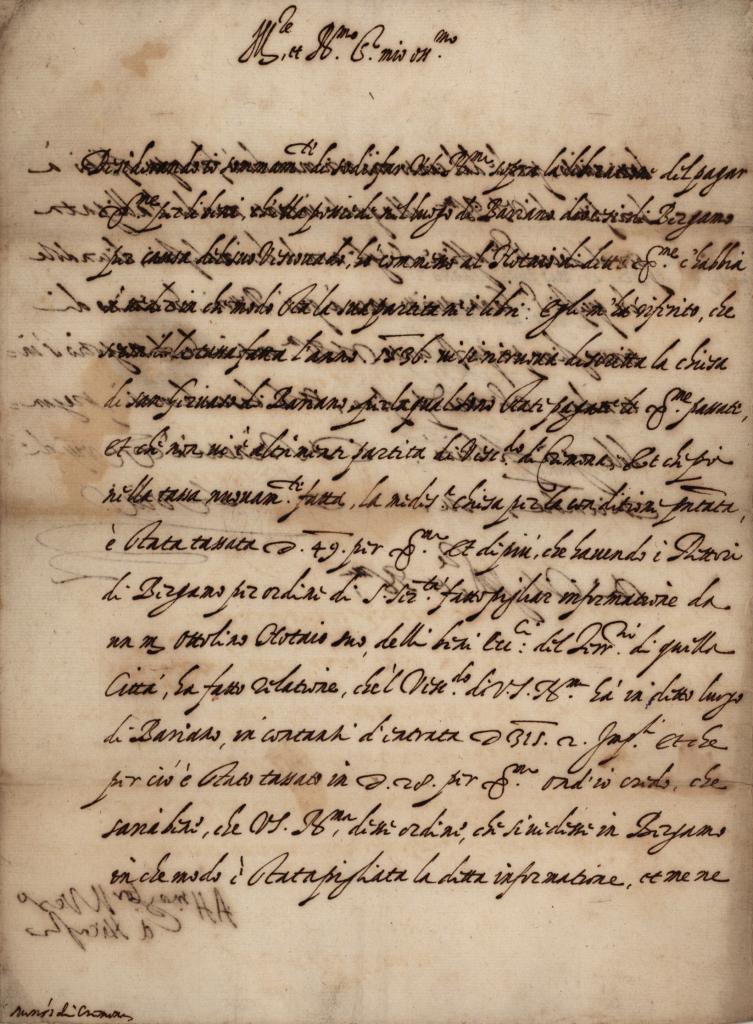 M.te et R.mo S.r mio oss.mo
Desiderando io sommam.te di sodisfar V.S. R.ma sopra la liberatione del pagar
per li beni, che ella possiede nel luogo di Bariano diocesi di Bergamo
per causa del suo Vescovado, hò commesso al Notaio di dette c'habbia
à veder in che modo stà la sua partita ne i libri: egli m'hà riferito, che
la tassa fatta l'anno 1536. vi si ritruova descritta la chiesa
di san Gervaso di Bariano, per la qual sono state pagate le passate,
et che non vi è altrimenti partita di Vesc.do di Cremona; Et che poi
nella tassa nuovam.te fatta, la medes.a chiesa per la conditione pntata,
è stata tassata D. 49. per Et di più, che havendo i Rettori
di Bergamo per ordine di S. Ser.tà fatto pigliar informatione da
un m. Ottolino Notaio suo, delli beni Ecc.ci del Terr.rio di quella
Città, ha fatto relatione, che'l Vesc.do di V.S. R.ma hà in detto luogo
di Bariano, in contanti d'entrata D 311. 2. et che
per ciò è stato tassato in D. 28. per ond'io credo, che
saria bene, che V.S. R.ma, desse ordine, che si vedesse in Bergamo
in che modo è stata pigliata la ditta informatione, et me ne
di Cremona